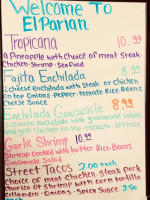 Welcome To
El Parian
Tropicana 10.99
a Pineapple with choice of meat steak
Chicken-Shrimp-Sea Food
Fajita Enchilada
2 cheese Enchiladas with steak or chicken
on top Onions-Pepper-Tomato Rice-Beans
Cheese Sauce 8.99
Enchilada Guacamole
and grill chicken on top-tomato-lettuce
Garlic Shrimp 10.99
Shrimp cooked with butter Rice-Beans
Guacamole Salad
Street Tacos 2.00 each
choice of meat Chicken-Steak
chorizo or Shrimp with corn tortilla
cilantro-Onions-Spicy Sauce 2.50